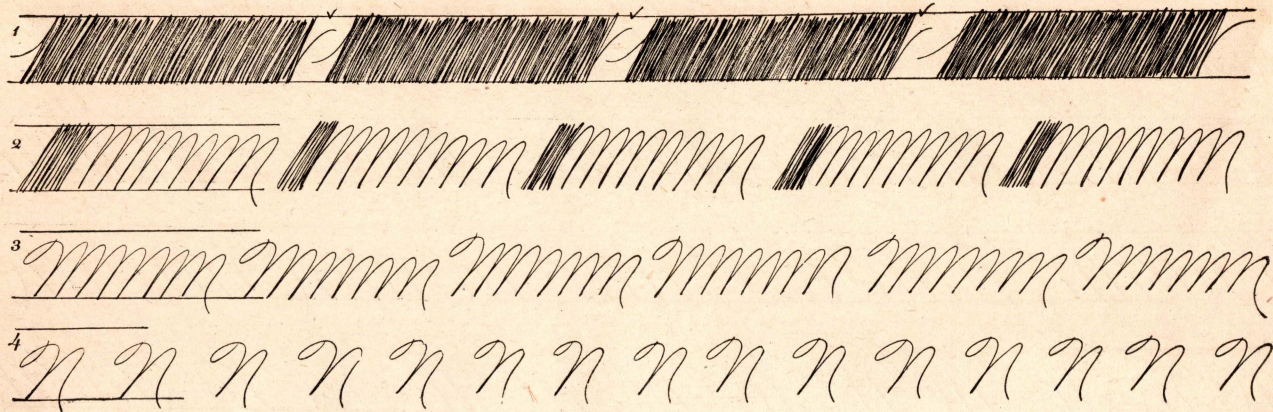 1
2
3
4 N N N N N N N N N N N N N N N